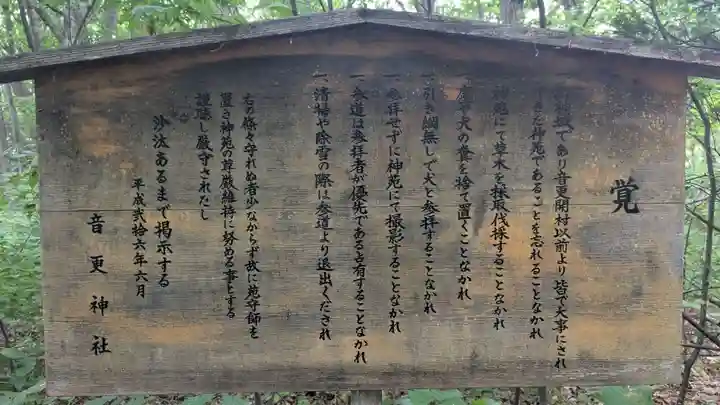 覚
一、神域であり音更開村以前より皆で大事にされ
てきた神苑であることを忘れることなかれ
神苑にて草木を採取伐採することなかれ
塵や犬の糞を捨て置くことなかれ
一、引き綱無しで犬と参拝することなかれ
一、参拝せずに神苑にて撮影することなかれ
一、参道は参拝者が優先である占有することなかれ
一、清掃や除雪の際は参道より退出くだされ
右の條々守れぬ者少なからず故に苑守師を
置き神苑の尊厳維持に努める事とする
諒承し厳守されたし
沙汰あるまで掲示する
平成弐拾六年六月
音更神社